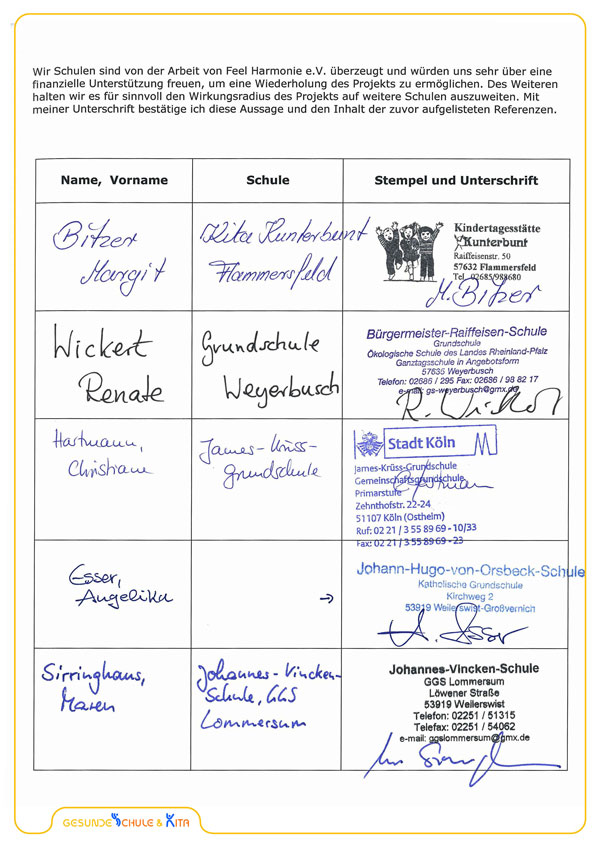 Wir Schulen sind von der Arbeit von Feel Harmonie e.V. überzeugt und würden uns sehr über eine
finanzielle Unterstützung freuen, um eine Wiederholung des Projekts zu ermöglichen. Des Weiteren
halten wir es für sinnvoll den Wirkungsradius des Projekts auf weitere Schulen auszuweiten. Mit
meiner Unterschrift bestätige ich diese Aussage und den Inhalt der zuvor aufgelisteten Referenzen.
Name, Vorname
Schule
Stempel und Unterschrift
Bitzer
Margit
Kita Kunterbunt
Flammersfeld
Kindertagesstätte
Kunterbunt
Raiffeisenstr. 50
57632 Flammersfeld
Tel. 02685/988680
M. Bitzer
Wickert
Renate
Grundschule
Weyerbusch
Bürgermeister-Raiffeisen-Schule
Grundschule
Ökologische Schule des Landes Rheinland-Pfalz
Ganztagsschule in Angebotsform
57635 Weyerbusch
Telefon: 02686 / 295 Fax: 02686 / 98 82 17
e-mail: gs-weyerbusch@gmx.de
R. Wickert
Hartmann,
Christiane
James-Krüss-
Grundschule
Stadt Köln
James-Krüss-Grundschule
Gemeinschaftsgrundschule
Primarstufe
Zehnthofstr. 22-24
51107 Köln (Ostheim)
Ruf: 02 21 / 3 55 89 69 - 10/33
Fax: 02 21 / 3 55 89 69 - 23
Esser,
Angelika
→
Johann-Hugo-von-Orsbeck-Schule
Katholische Grundschule
Kirchweg 2
53919 Weilerswist-Großvernich
A. Esser
Sirringhaus,
Maren
Johannes-Vincken-
Schule, GGS
Lommersum
Johannes-Vincken-Schule
GGS Lommersum
Löwener Straße
53919 Weilerswist
Telefon: 02251 / 51315
Telefax: 02251 / 54062
e-mail: ggslommersum@gmx.de
GESUNDE SCHULE & KITA